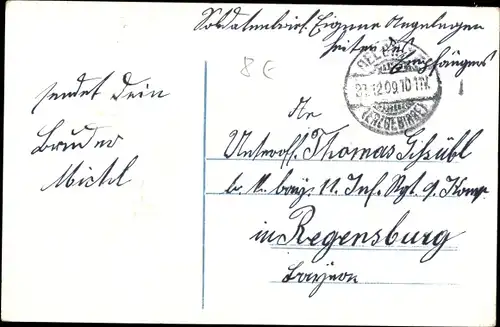 Soldatenbrief. Eigene Angelegen
heiten des
Empfängers
8 €
31.12.09.10-11V.
(ERZGEBIRGE)
sendet Dein
Bruder
Michl
An
Unteroff. Thomas Gßübl
b. k. bayr. 11. Inf. Rgt. 9. Komp.
in Regensburg
Bayern